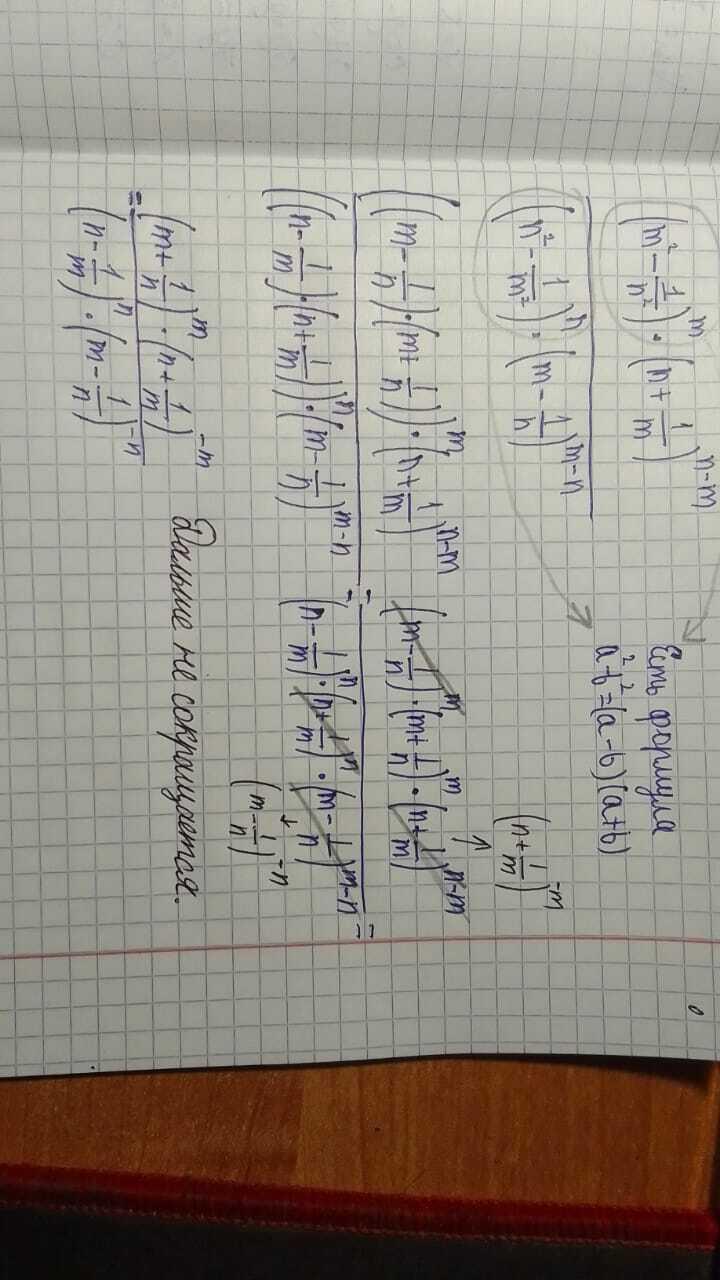 (m² - 1/n²)^m · (n + 1/m)^(n-m)
(n² - 1/m²)^n · (m - 1/n)^(m-n)
Есть формула
a²-b²=(a-b)(a+b)
((m - 1/n)·(m + 1/n))^m · (n + 1/m)^(n-m)
((n - 1/m)·(n + 1/m))^n · (m - 1/n)^(m-n)
=
(n + 1/m)^(-m)
↑
(m - 1/n)^m · (m + 1/n)^m · (n + 1/m)^(n-m)
(n - 1/m)^n · (n + 1/m)^n · (m - 1/n)^(m-n)
=
↓
(m - 1/n)^(-n)
=
(m + 1/n)^m · (n + 1/m)^(-m)
(n - 1/m)^n · (m - 1/n)^(-n)
Дальше не сокращается.